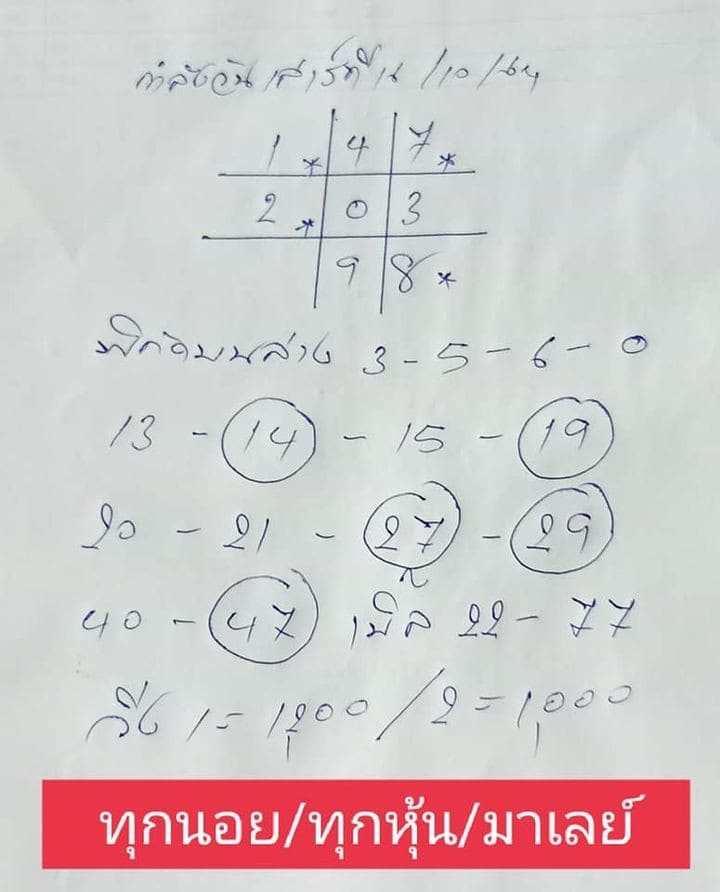 กำลังวันเสาร์ที่ /10/
1* 4 7*
2* 0 3
9 8*
พิกัดบนล่าง 3-5-6-0
13 - 14 - 15 - 19
20 - 21 - 27 - 29
40 - 47 เบิ้ล 22 - 77
วิ่ง 1=1,200/2=1,000
ทุกนอย/ทุกหุ้น/มาเลย์